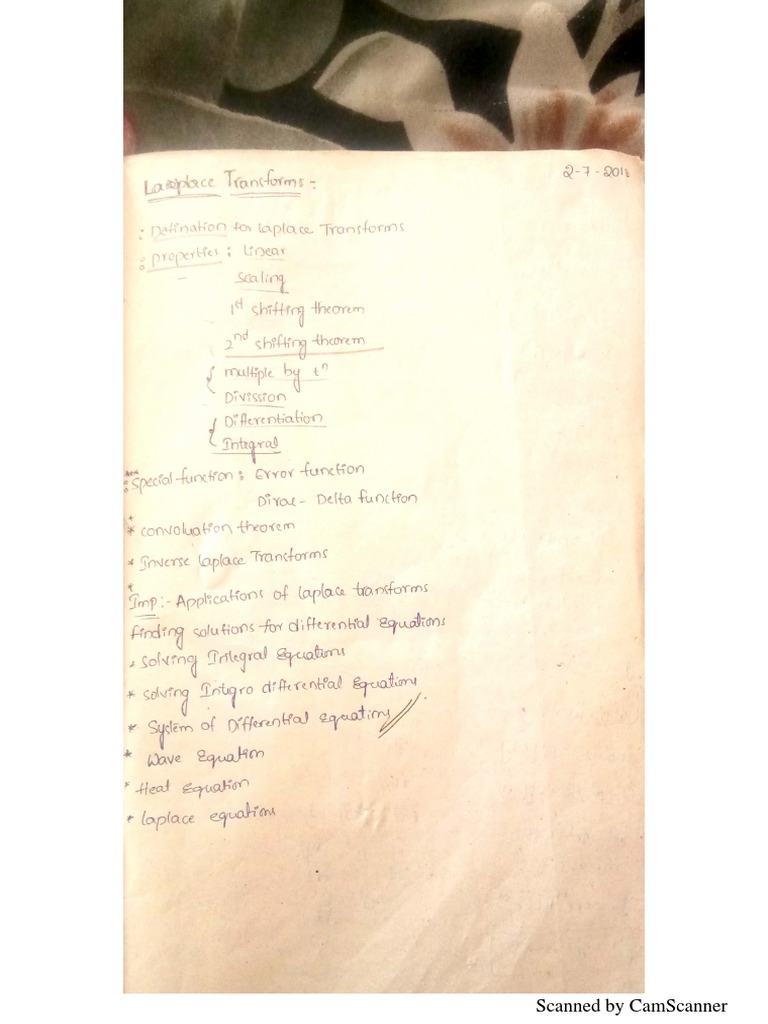 Laplace Transforms :-
2-7-201
: Defination for laplace Transforms
: properties : linear
scaling
1st shifting theorem
2nd shifting theorem
multiple by tⁿ
Divission
Differentiation
Integral
: special function : Error function
Dirac - Delta function
* convoluation theorem
* Inverse laplace Transforms
Imp :- Applications of laplace transforms
finding solutions for differential Equations
* solving Integral Equations
* solving Intigro differential Equations
* System of Differential equations //
* Wave Equation
* Heat Equation
* laplace equations
Scanned by CamScanner